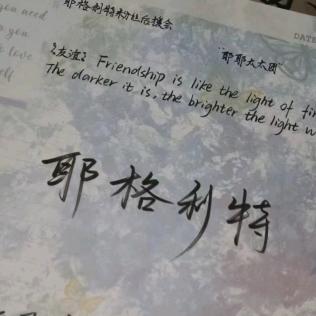 耶格利特粉丝后援会
"耶耶大太团"
《友谊》 Friendship is like the light of
The darker it is, the brighter the light
耶格利特
you need
you
love
DATE